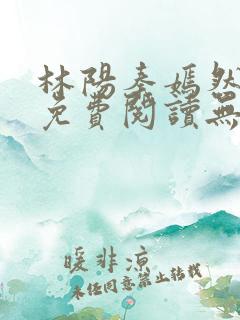 林陽秦嫣然
免費閱讀無
暖非涼
未經同意禁止转载